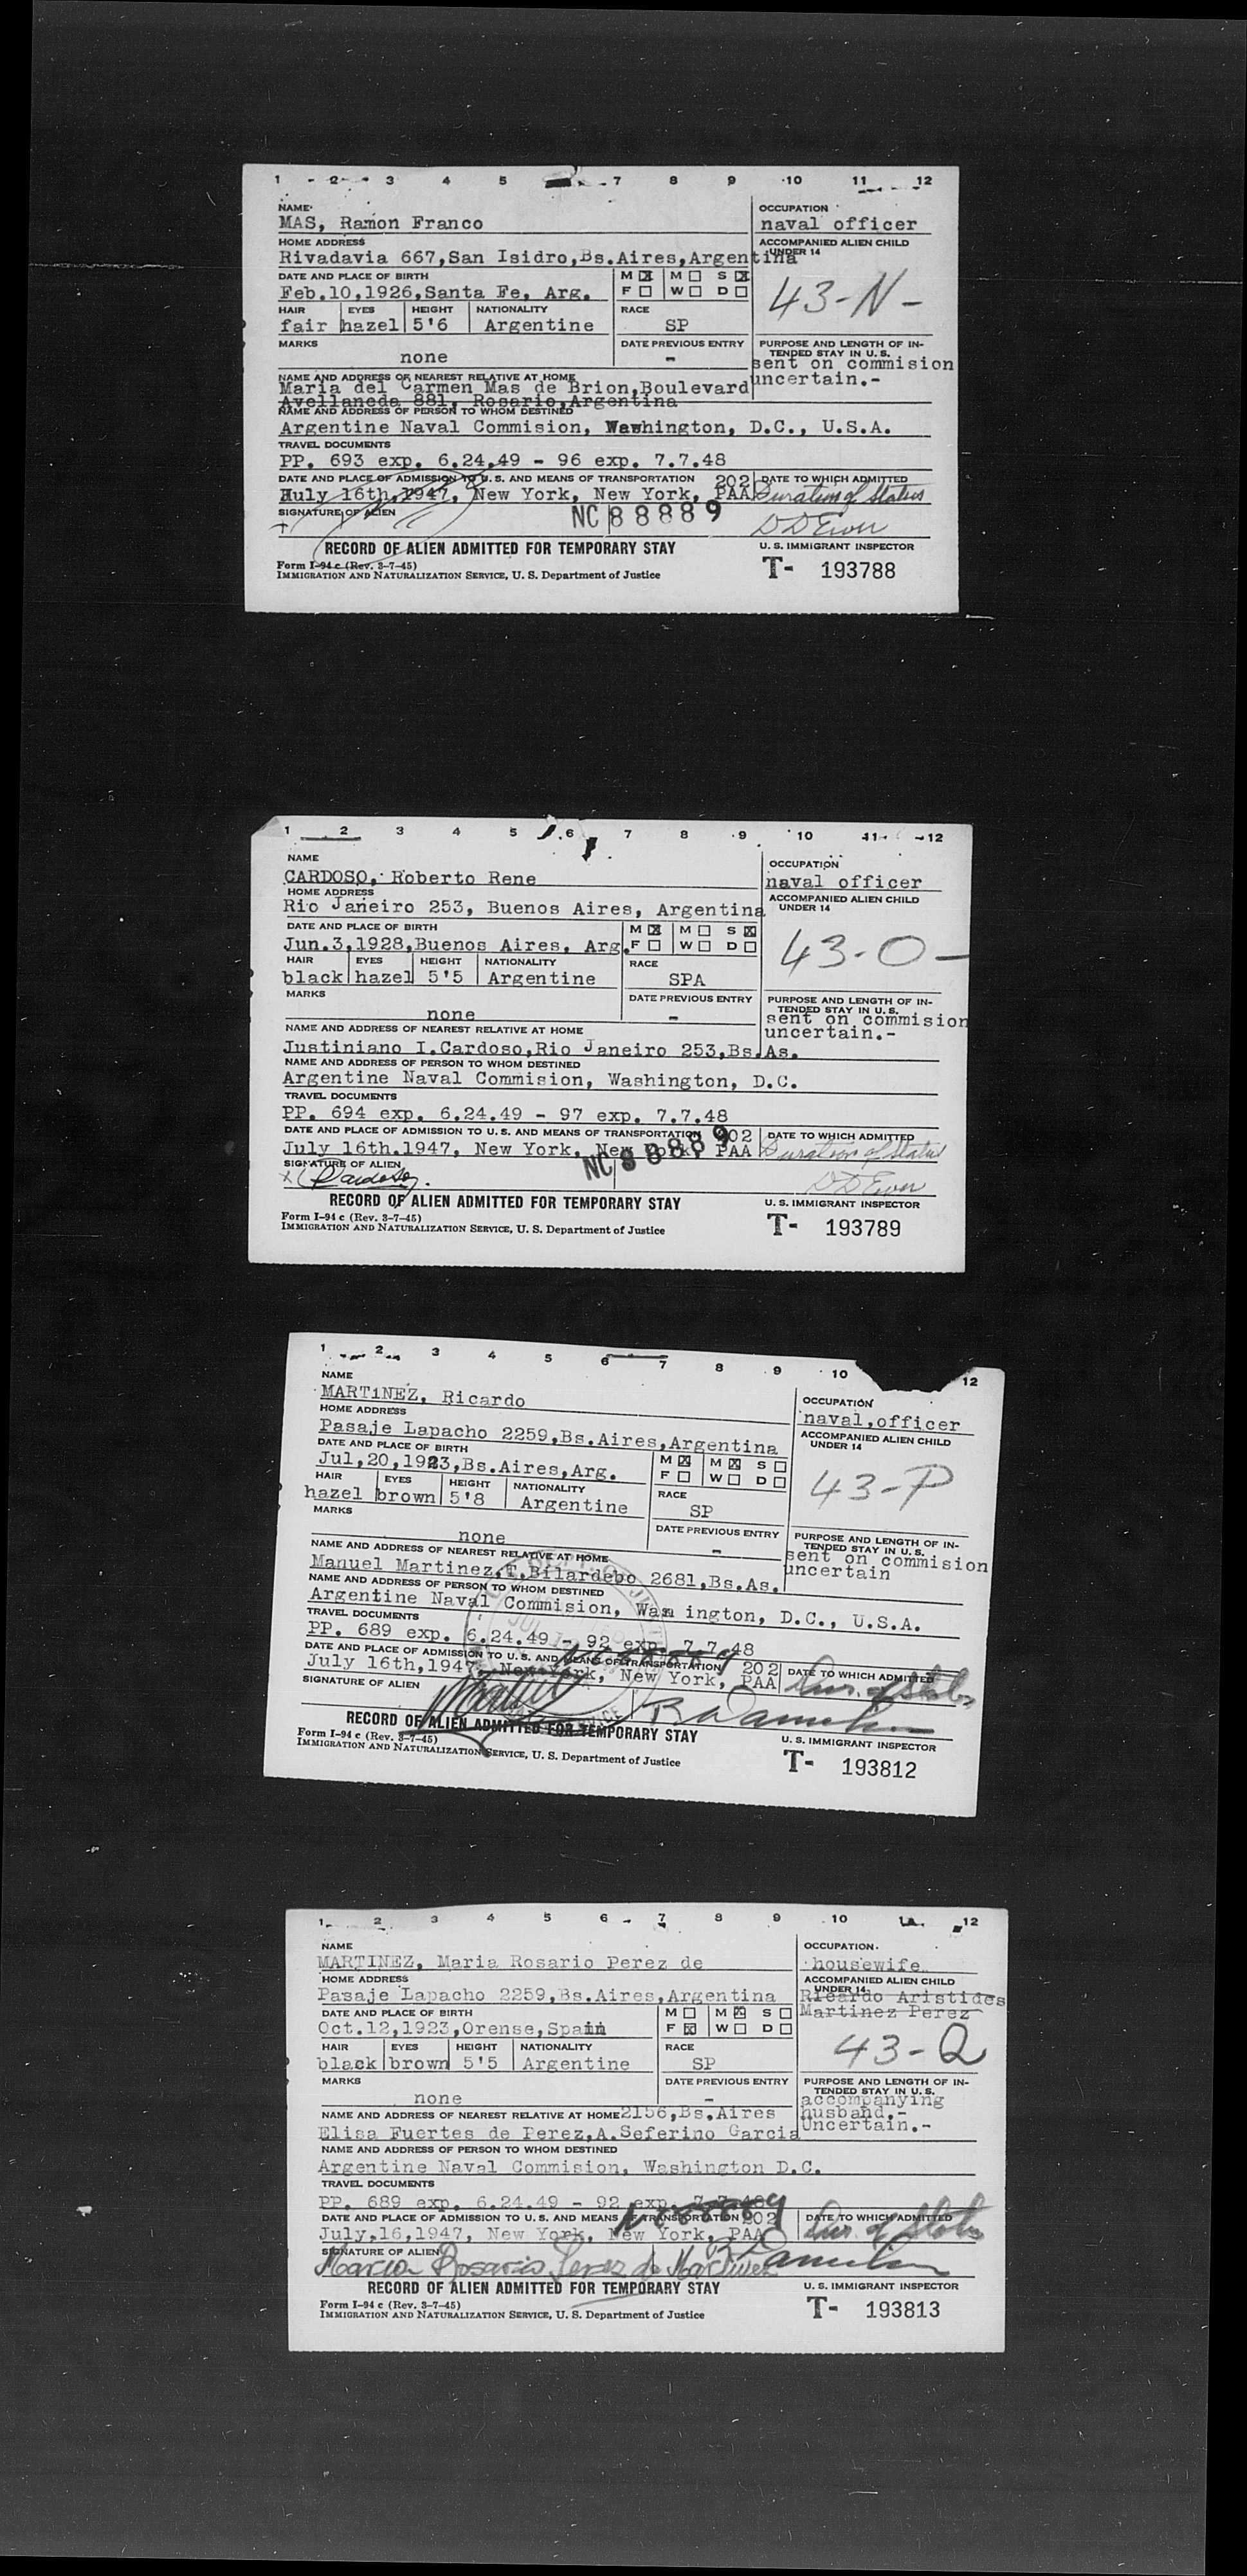 1 2 3 4 5 7 8 9 10 11 12
NAME OCCUPATION
MAS, Ramon Franco naval officer
HOME ADDRESS ACCOMPANIED ALIEN CHILD UNDER 14
Rivadavia 667,San Isidro,Bs.Aires,Argentina
DATE AND PLACE OF BIRTH M ☒ M ☐ S ☒
Feb.10,1926,Santa Fe, Arg. F ☐ W ☐ D ☐ 43-N-
HAIR EYES HEIGHT NATIONALITY RACE
fair hazel 5'6 Argentine SP
MARKS DATE PREVIOUS ENTRY PURPOSE AND LENGTH OF IN-
TENDED STAY IN U. S.
none - sent on commision
NAME AND ADDRESS OF NEAREST RELATIVE AT HOME uncertain.-
Maria del Carmen Mas de Brion,Boulevard
Avellaneda 881, Rosario,Argentina
NAME AND ADDRESS OF PERSON TO WHOM DESTINED
Argentine Naval Commision, Washington, D.C., U.S.A.
TRAVEL DOCUMENTS
PP. 693 exp. 6.24.49 - 96 exp. 7.7.48
DATE AND PLACE OF ADMISSION TO U. S. AND MEANS OF TRANSPORTATION 202 DATE TO WHICH ADMITTED
July 16th,1947, New York, New York, PAA Duration of Status
SIGNATURE OF ALIEN NC 88889 D D Ewer
RECORD OF ALIEN ADMITTED FOR TEMPORARY STAY U. S. IMMIGRANT INSPECTOR
Form I-94 c (Rev. 3-7-45)
IMMIGRATION AND NATURALIZATION SERVICE, U. S. Department of Justice T- 193788
1 2 3 4 5 6 7 8 9 10 11 12
NAME OCCUPATION
CARDOSO, Roberto Rene naval officer
HOME ADDRESS ACCOMPANIED ALIEN CHILD UNDER 14
Rio Janeiro 253, Buenos Aires, Argentina
DATE AND PLACE OF BIRTH M ☒ M ☐ S ☒
Jun.3,1928,Buenos Aires, Arg. F ☐ W ☐ D ☐ 43-O-
HAIR EYES HEIGHT NATIONALITY RACE
black hazel 5'5 Argentine SPA
MARKS DATE PREVIOUS ENTRY PURPOSE AND LENGTH OF IN-
TENDED STAY IN U. S.
none - sent on commision
NAME AND ADDRESS OF NEAREST RELATIVE AT HOME uncertain.-
Justiniano I.Cardoso,Rio Janeiro 253,Bs.As.
NAME AND ADDRESS OF PERSON TO WHOM DESTINED
Argentine Naval Commision, Washington, D.C.
TRAVEL DOCUMENTS
PP. 694 exp. 6.24.49 - 97 exp. 7.7.48
DATE AND PLACE OF ADMISSION TO U. S. AND MEANS OF TRANSPORTATION 202 DATE TO WHICH ADMITTED
July 16th.1947, New York, New York, PAA Duration of Status
SIGNATURE OF ALIEN NC 88889
x RCardoso. D D Ewer
RECORD OF ALIEN ADMITTED FOR TEMPORARY STAY U. S. IMMIGRANT INSPECTOR
Form I-94 c (Rev. 3-7-45)
IMMIGRATION AND NATURALIZATION SERVICE, U. S. Department of Justice T- 193789
1 2 3 4 5 6 7 8 9 10 12
NAME OCCUPATION
MARTiNEZ, Ricardo naval officer
HOME ADDRESS ACCOMPANIED ALIEN CHILD UNDER 14
Pasaje Lapacho 2259,Bs.Aires,Argentina
DATE AND PLACE OF BIRTH M ☒ M ☒ S ☐
Jul,20,1923,Bs.Aires,Arg. F ☐ W ☐ D ☐ 43-P
HAIR EYES HEIGHT NATIONALITY RACE
hazel brown 5'8 Argentine SP
MARKS DATE PREVIOUS ENTRY PURPOSE AND LENGTH OF IN-
TENDED STAY IN U. S.
none - sent on commision
NAME AND ADDRESS OF NEAREST RELATIVE AT HOME uncertain
Manuel Martinez,T.Bilardebo 2681,Bs.As.
NAME AND ADDRESS OF PERSON TO WHOM DESTINED
Argentine Naval Commision, Was ington, D.C., U.S.A.
TRAVEL DOCUMENTS
PP. 689 exp. 6.24.49 - 92 exp. 7.7.48
DATE AND PLACE OF ADMISSION TO U. S. AND MEANS OF TRANSPORTATION 202 DATE TO WHICH ADMITTED
July 16th,1947, New York, New York, PAA Dur. of Status
SIGNATURE OF ALIEN
RECORD OF ALIEN ADMITTED FOR TEMPORARY STAY U. S. IMMIGRANT INSPECTOR
Form I-94 c (Rev. 3-7-45)
IMMIGRATION AND NATURALIZATION SERVICE, U. S. Department of Justice T- 193812
1 2 3 4 5 6 7 8 9 10 12
NAME OCCUPATION
MARTINEZ, Maria Rosario Perez de housewife
HOME ADDRESS ACCOMPANIED ALIEN CHILD UNDER 14
Pasaje Lapacho 2259,Bs.Aires,Argentina Ricardo Aristides
DATE AND PLACE OF BIRTH M ☐ M ☒ S ☐ Martinez Perez
Oct.12,1923,Orense,Spain F ☒ W ☐ D ☐
HAIR EYES HEIGHT NATIONALITY RACE 43-Q
black brown 5'5 Argentine SP
MARKS DATE PREVIOUS ENTRY PURPOSE AND LENGTH OF IN-
TENDED STAY IN U. S.
none - accompanying
NAME AND ADDRESS OF NEAREST RELATIVE AT HOME 2156,Bs.Aires husband.-
Elisa Fuertes de Perez,A.Seferino Garcia Uncertain.-
NAME AND ADDRESS OF PERSON TO WHOM DESTINED
Argentine Naval Commision, Washington D.C.
TRAVEL DOCUMENTS
PP. 689 exp. 6.24.49 - 92 exp. 7.7.48
DATE AND PLACE OF ADMISSION TO U. S. AND MEANS OF TRANSPORTATION 202 DATE TO WHICH ADMITTED
July,16,1947, New York, New York, PAA Dur. of Status
SIGNATURE OF ALIEN
Maria Rosario Perez de Martinez
RECORD OF ALIEN ADMITTED FOR TEMPORARY STAY U. S. IMMIGRANT INSPECTOR
Form I-94 c (Rev. 3-7-45)
IMMIGRATION AND NATURALIZATION SERVICE, U. S. Department of Justice T- 193813